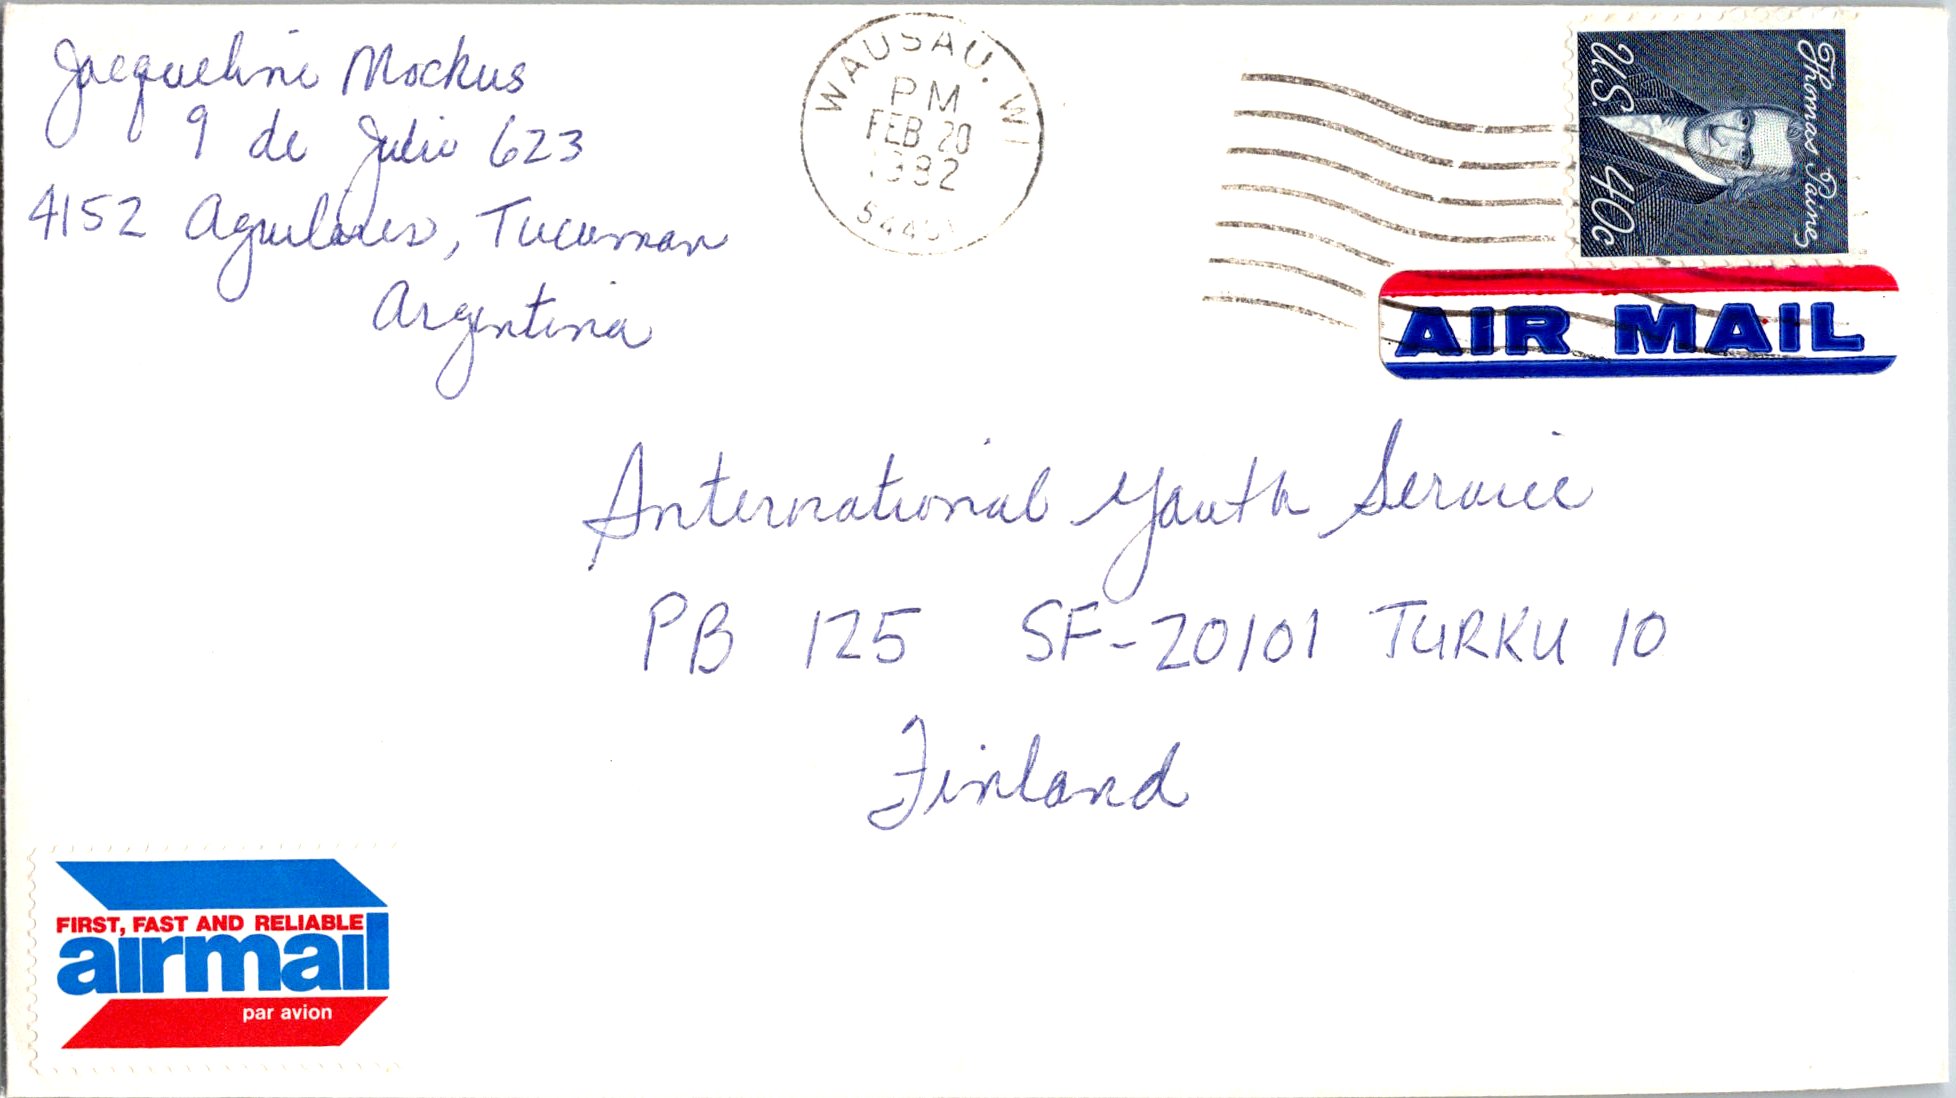 Jacqueline Mockus
9 de Julio 623
4152 Aguilares, Tucuman
Argentina
WAUSAU, WI
PM
FEB 20
1982
Thomas Paine
U.S. 40c
AIR MAIL
International Youth Service
PB 125 SF-20101 TURKU 10
Finland
FIRST, FAST AND RELIABLE
airmail
par avion